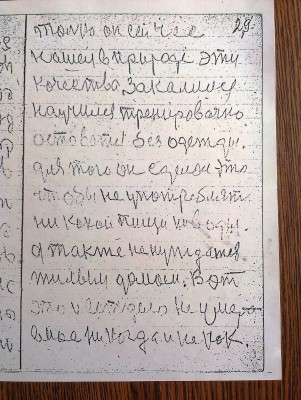 29
только он сейчас
нашел в природе эти
качества. Закалился
научился тренировочно
оставатся без одежды.
для того он сделал это
чтобы не употреблять
ни какой пищи ни воды.
а также не нуждатся
жилым домом. Вот
это и
никогда и не как.